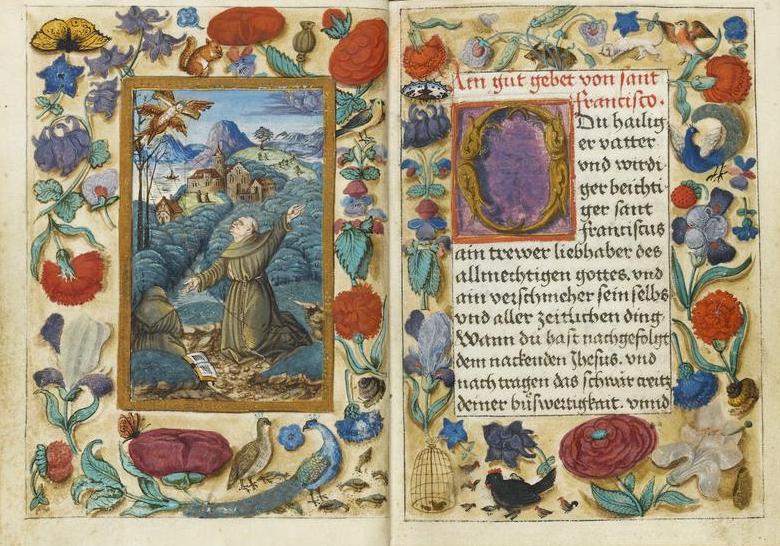 Ain gut gebet von sant
francisco.
Du hailig
er vatter
vnd wirdi
ger beichti
ger sant
franciscus
ain trewer liebhaber des
allmechtigen gottes. vnd
ain verschmeher sein selbs
vnd aller zeitlichen ding.
Wann du hast nachgefolgt
dem nackenden Jhesus. vnd
nach tragen das schwär creütz
deiner büswertigkait. vnnd